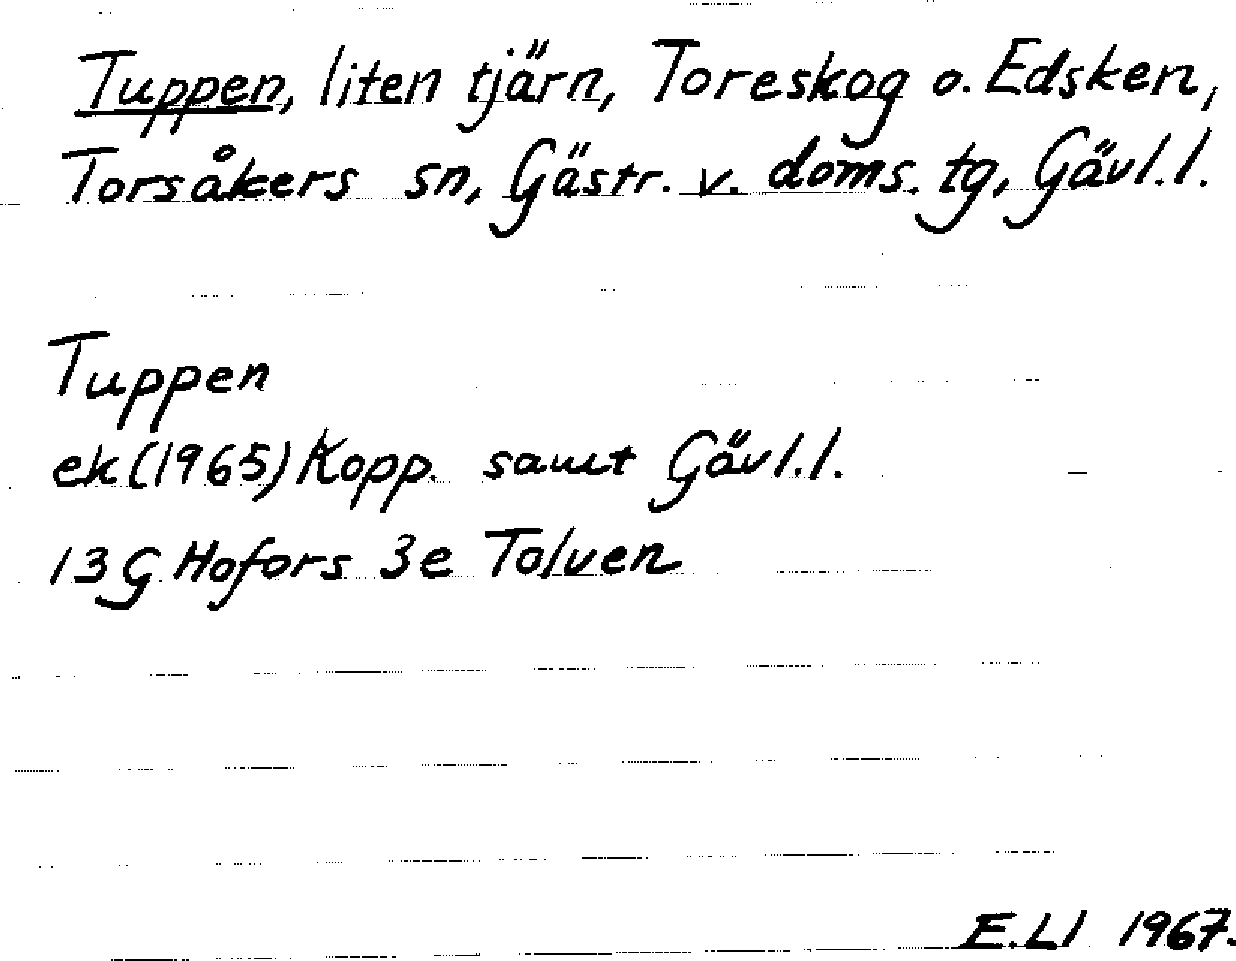 Tuppen, liten tjärn, Toreskog o. Edsken,
Torsåkers sn, Gästr. v. doms. tg, Gävl.l.
Tuppen
ek (1965) Kopp. samt Gävl.l.
13G Hofors 3e Tolven
E.Ll 1967.